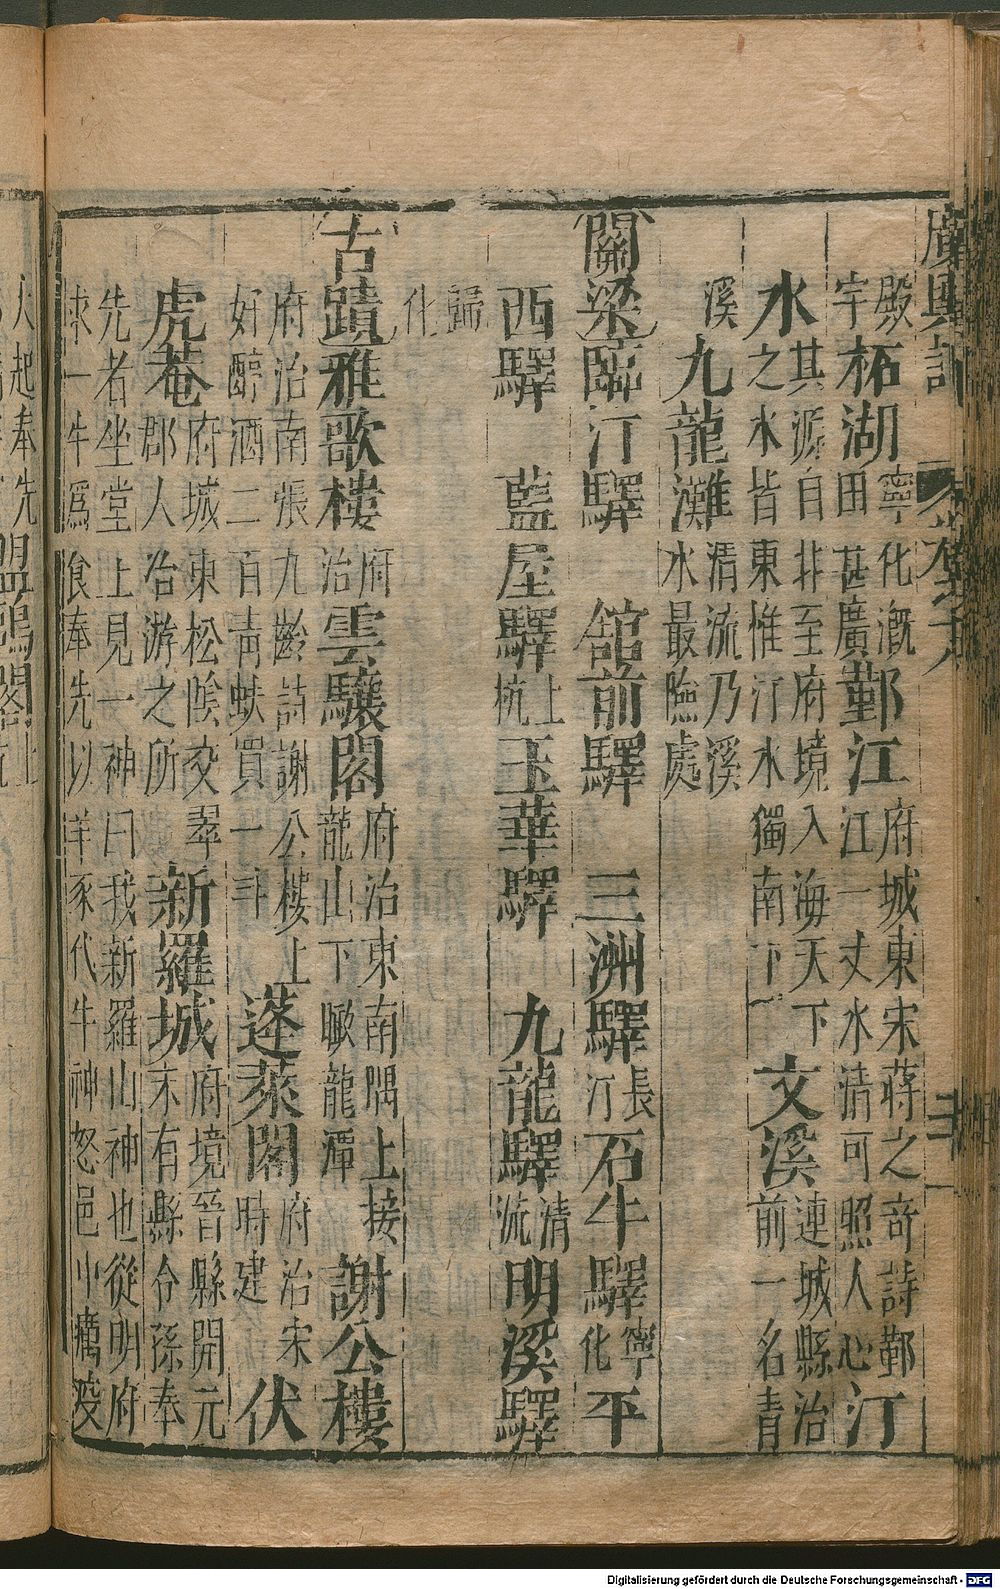 廣輿記 卷之十八
殿宇柘湖寧化溉田甚廣鄞江府城東宋蔣之奇詩鄞江一丈水清可照人心汀
水其源自非至府境入海天下之水皆東惟汀水獨南下文溪連城縣治前一名青
溪九龍灘清流乃溪水最險處
關梁臨汀驛 館前驛 三洲驛長汀石牛驛寧化平
西驛 藍屋驛上杭玉華驛 九龍驛清流明溪驛
歸化
古蹟雅歌樓府治雲驤閣府治東南隅上接龍山下瞰龍潭謝公樓
府治南張九齡詩謝公樓上好醇酒二百青蚨買一斗蓬萊閣府治宋時建伏
虎菴府城東松陰交翠郡人冶游之所新羅城府境晉縣開元末有縣令孫奉
先者坐堂上見一神曰我新羅山神也從明府求一牛爲食奉先以羊豕代牛神怒邑中癘疫
大起奉先 盟鷗閣上杭
Digitalisierung gefördert durch die Deutsche Forschungsgemeinschaft - DFG